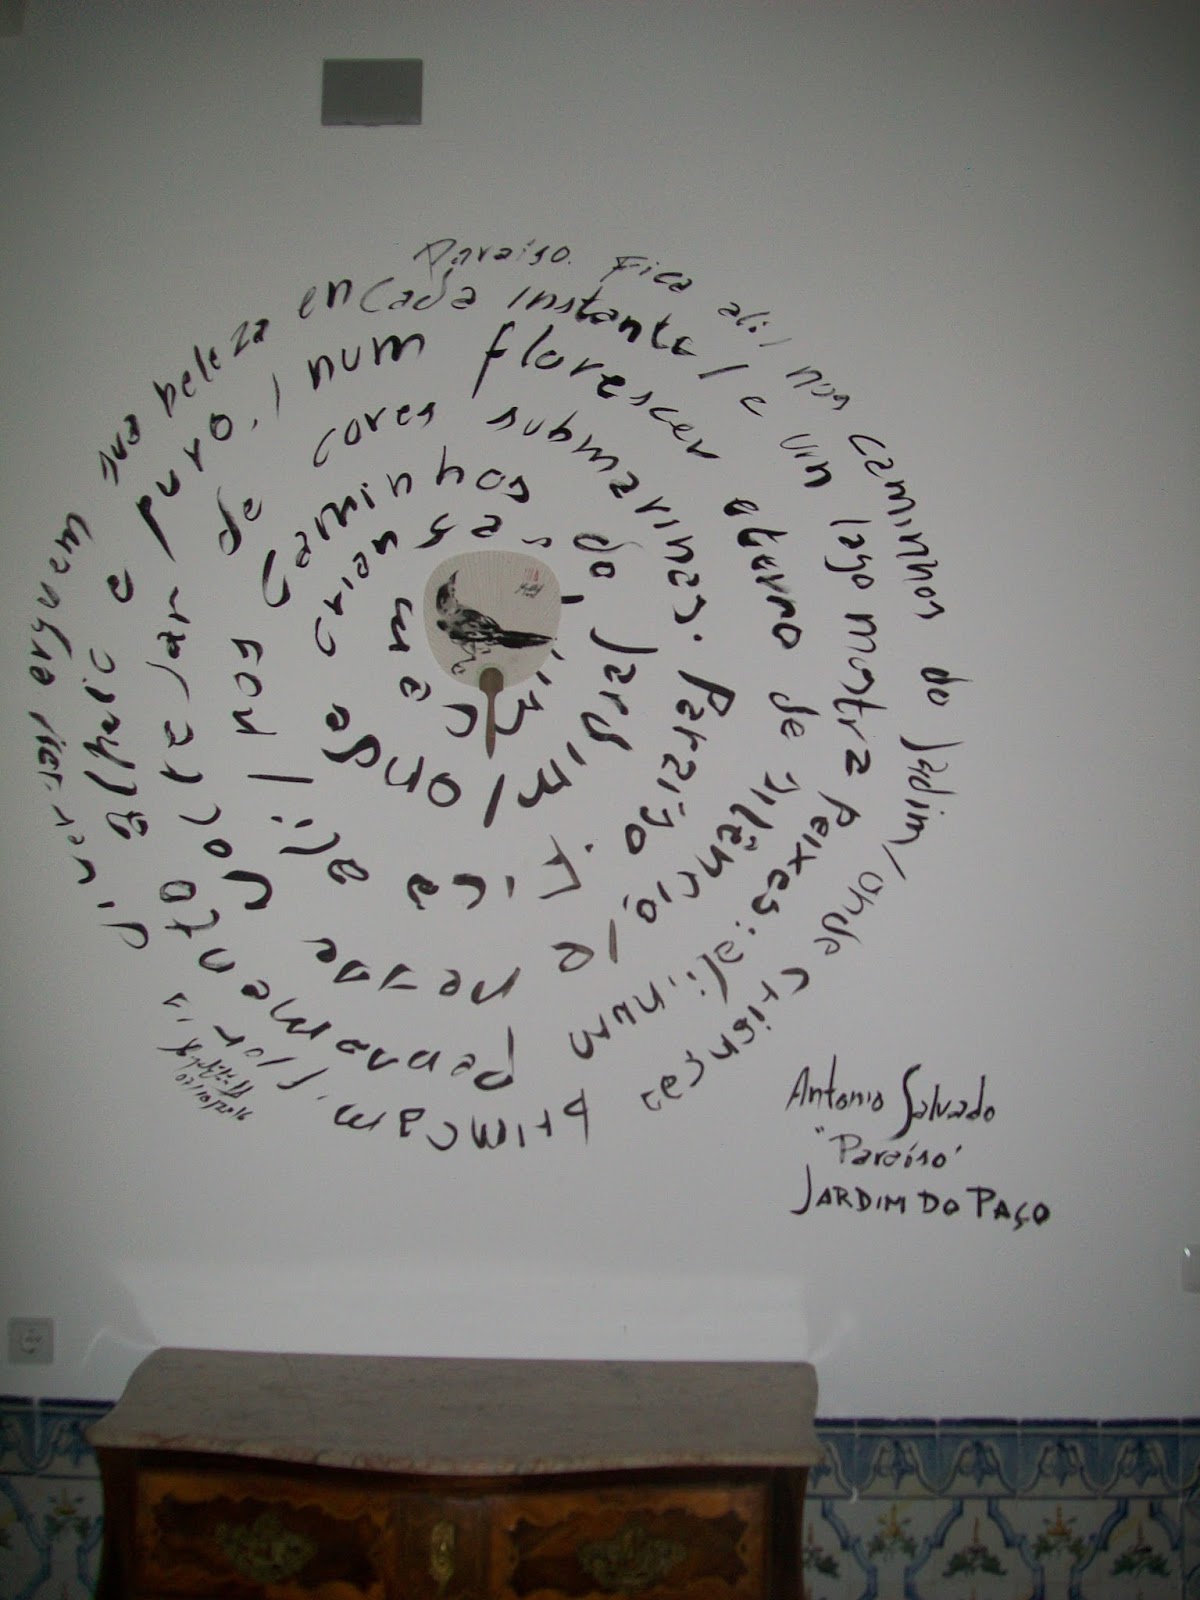 Paraíso. Fica ali, / nos caminhos do jardim / onde crianças brincam. Flor
diversas sua beleza em cada instante / e um lago mostra peixes: ali, num pensamento
e puro, / num florescer eterno de silêncio, / e nesse
de cores submarinas. Paraíso. Fica ali, / nos
caminhos do jardim / onde
crianças
07/10/2016
Antonio Salvado
"Paraíso"
JARDIM DO PAÇO